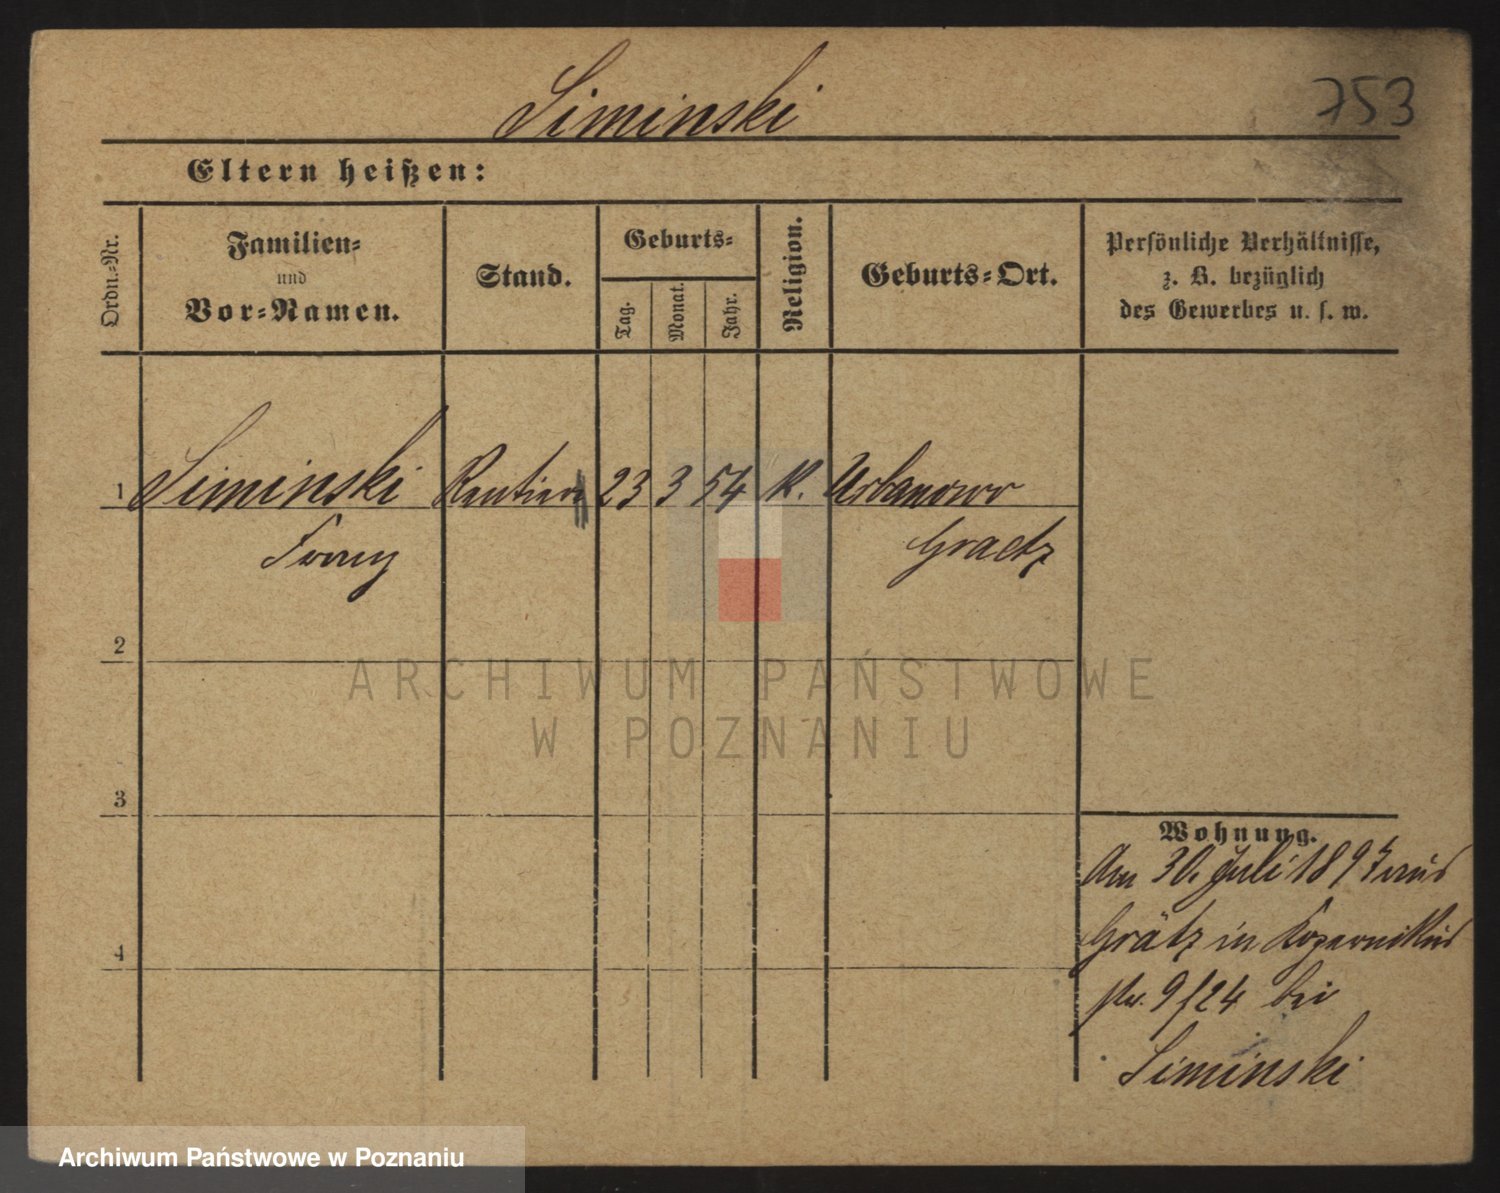 Siminski
753
Eltern heißen:
Ordn.-Nr.
Familien-
und
Vor-Namen.
Stand.
Geburts-
Tag.
Monat.
Jahr.
Religion.
Geburts-Ort.
Persönliche Verhältnisse,
z. B. bezüglich
des Gewerbes u. s. w.
1 Siminski Rentier 23 3 54 K. Urbanowo
Franz Graetz
2
ARCHIWUM PAŃSTWOWE
W POZNANIU
3
Wohnung.
Am 30. Juli 1897 aus
Grätz in Kopernikus
4
str. 9/24 bei
Siminski
Archiwum Państwowe w Poznaniu